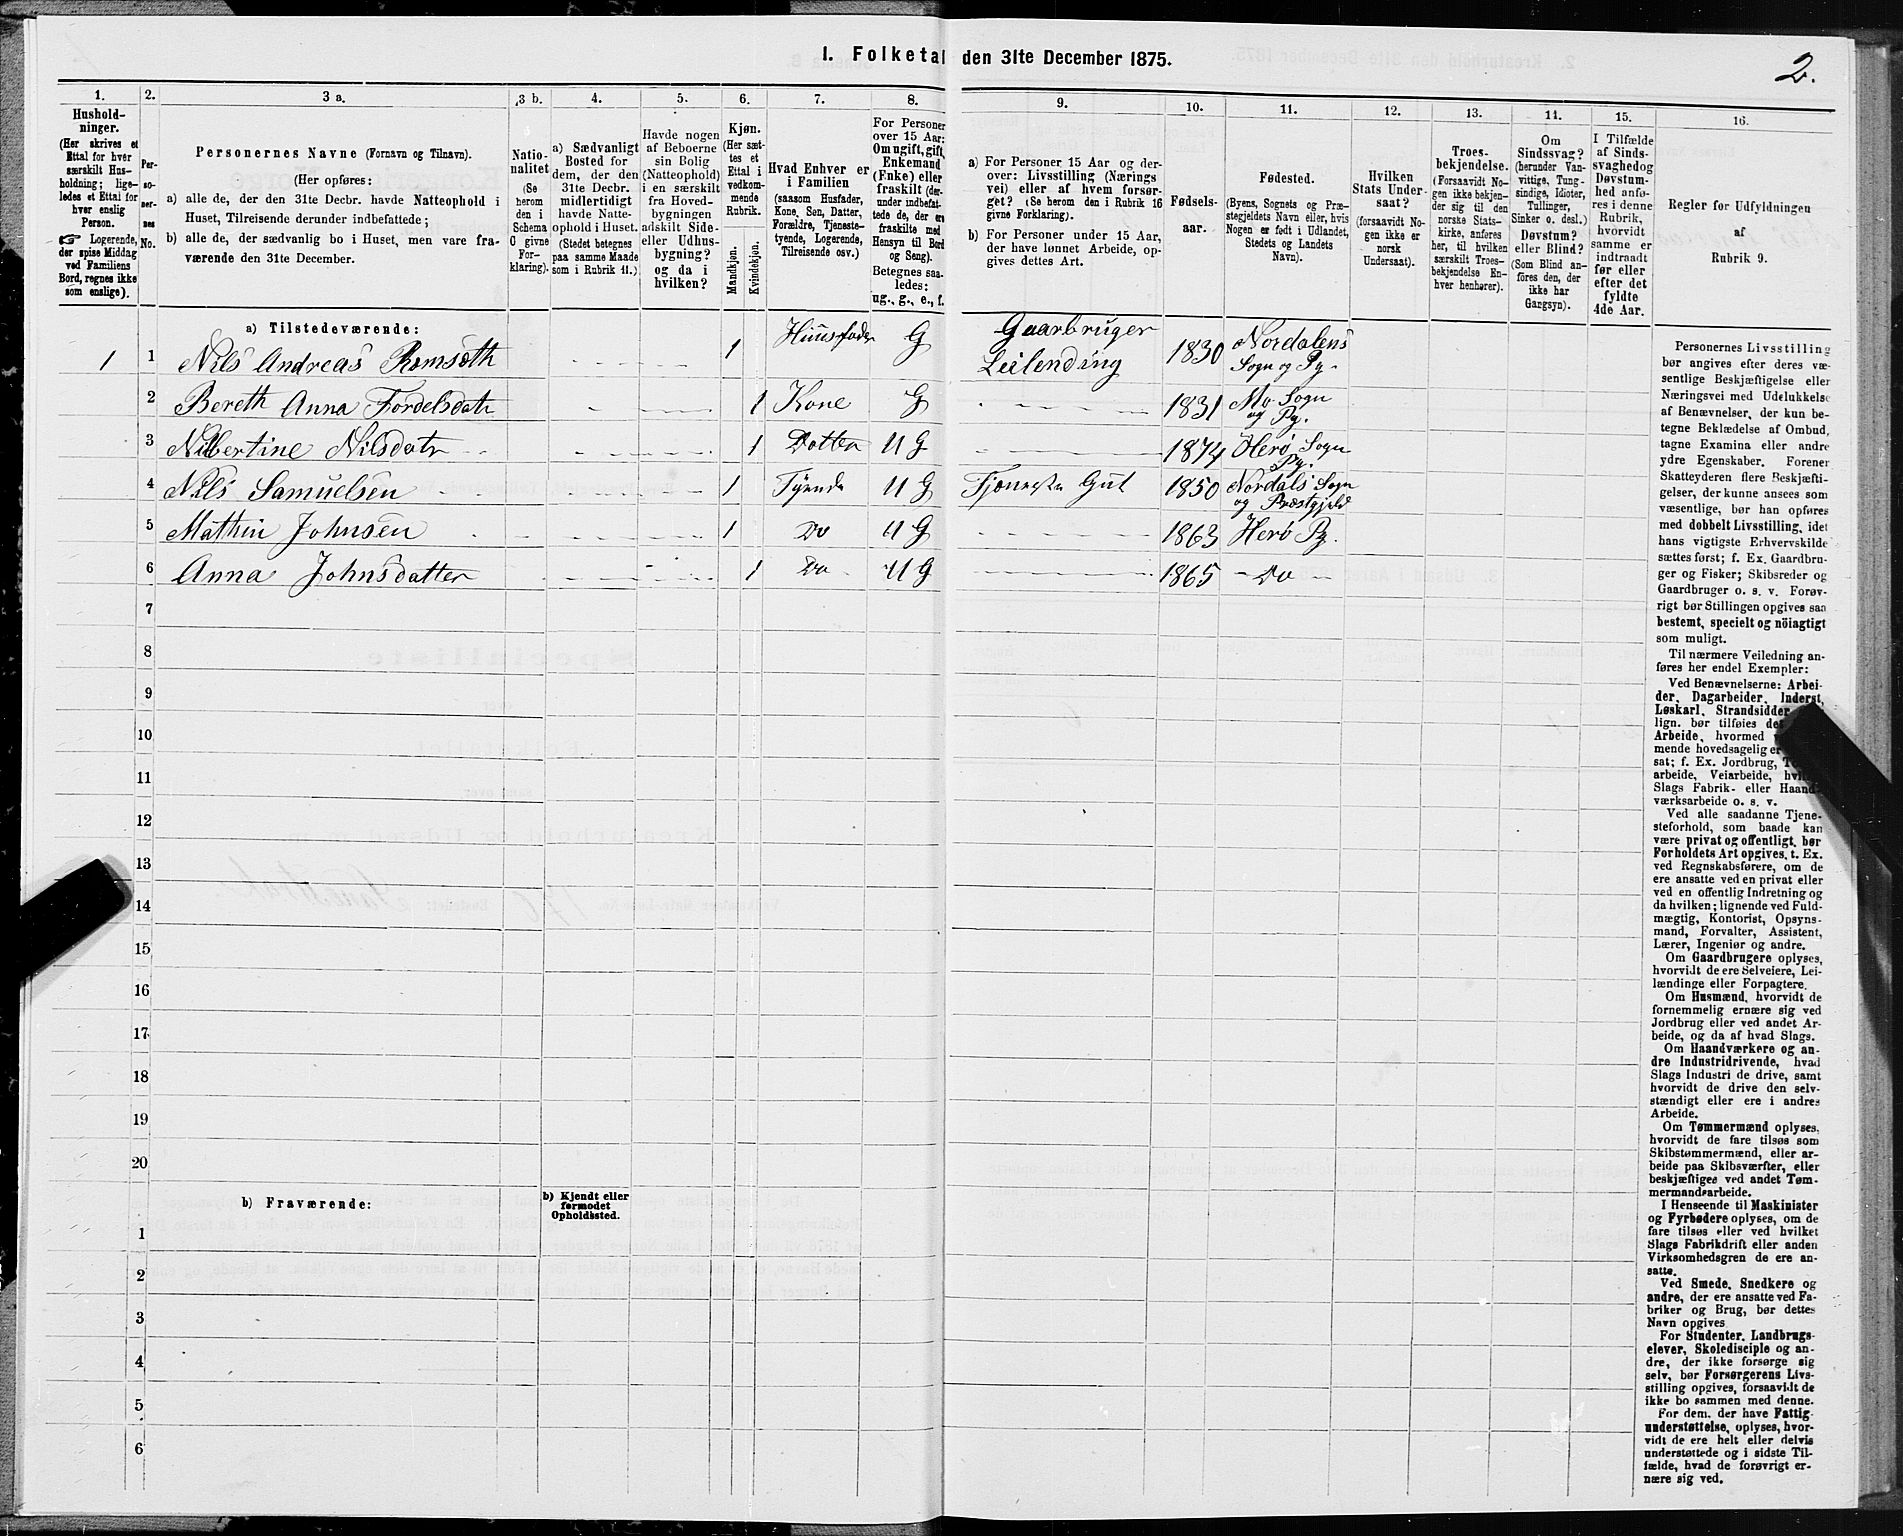 I. Folketal den 31te December 1875.
2.
1.
Hushold-
ninger.
(Her skrives et
Ettal for hver
særskilt Hus-
holdning; lige-
ledes et Ettal for
hver enslig
Person.
☞ Logerende,
der spise Middag
ved Familiens
Bord, regnes ikke
som enslige).
2.
Per-
so-
ner-
nes
No.
3 a.
Personernes Navne (Fornavn og Tilnavn).
(Her opføres:
a) alle de, der den 31te Decbr. havde Natteophold i
Huset, Tilreisende derunder indbefattede;
b) alle de, der sædvanlig bo i Huset, men vare fra-
værende den 31te December.
3 b.
Natio-
nalitet
(Se
herom
den i
Schema
C givne
For-
klaring).
4.
a) Sædvanligt
Bosted for
dem, der den
31te Decbr.
midlertidigt
havde Natte-
ophold i Huset.
(Stedet betegnes
paa samme Maade
som i Rubrik 11.)
5.
Havde nogen
af Beboerne
sin Bolig
(Natteophold)
i en særskilt
fra Hoved-
bygningen
adskilt Side-
eller Udhus-
bygning?
og da i
hvilken?
6.
Kjøn.
(Her sæt-
tes et
Ettal i
vedkom-
mende
Rubrik.
Mandkjøn.
Kvindekjøn.
7.
Hvad Enhver er
i Familien
(saasom Husfader,
Kone, Søn, Datter,
Forældre, Tjeneste-
tyende, Logerende,
Tilreisende osv.)
8.
For Personer
over 15 Aar:
Om ugift, gift,
Enkemand
(Enke) eller
fraskilt (der-
under indbefat-
tede de, der ere
fraskilte med
Hensyn til Bord
og Seng).
Betegnes saa-
ledes:
ug., g., e., f.
9.
a) For Personer 15 Aar og der-
over: Livsstilling (Nærings
vei) eller af hvem forsør-
get? (Se herom den i Rubrik 16
givne Forklaring).
b) For Personer under 15 Aar,
der have lønnet Arbeide, op-
gives dettes Art.
10.
Fødsels-
aar.
11.
Fødested.
(Byens, Sognets og Præ-
stegjeldets Navn eller, hvis
Nogen er født i Udlandet,
Stedets og Landets
Navn).
12.
Hvilken
Stats Under-
saat?
(forsaavidt No-
gen ikke er
norsk
Undersaat).
13.
Troes-
bekjendelse.
(Forsaavidt No-
gen ikke bekjen-
der sig til den
norske Stats-
kirke, anføres
her, til hvilken
særskilt Troes-
bekjendelse En-
hver henhører).
14.
Om
Sindssvag?
(herunder Van-
vittige, Tung-
sindige, Idioter,
Tullinger,
Sinker o. desl.)
Døvstum?
eller Blind?
(Som Blind an-
føres den, der
ikke har
Gangsyn).
15.
I Tilfælde
af Sinds-
svaghed og
Døvstum-
hed anfø-
res i denne
Rubrik,
hvorvidt
samme er
indtraadt
før eller
efter det
fyldte
4de Aar.
16.
Regler for Udfyldningen
af
Rubrik 9.
a) Tilstedeværende:
1 1 Nils Andreas Romseth 1 Huusfader G Gaarbruger Leilending 1830 Nordalens Sogn og Pg.
2 Bereth Anna Fordelsdatr 1 Kone G 1831 Mo Sogn og Pg.
3 Nilbertine Nilsdatr 1 Datter U G 1874 Herø Sogn Pg.
4 Nils Samuelsen 1 Tyende U G Tjeneste Gut 1850 Nordals Sogn og Præstgjeld
5 Mathin Johnsen 1 Do U G 1863 Herø Pg.
6 Anna Johnsdatter 1 Do U G 1865 Do
7
8
9
10
11
12
13
14
15
16
17
18
19
20
b) Fraværende:
b) Kjendt eller
formodet
Opholdssted.
1
2
3
4
5
6
Personernes Livsstilling
bør angives efter deres væ-
sentlige Beskjæftigelse eller
Næringsvei med Udelukkelse
af Benævnelser, der kun be-
tegne Beklædelse af Ombud,
tagne Examina eller andre
ydre Egenskaber. Forener
Skatteyderen flere Beskjæfti-
gelser, der kunne ansees som
væsentlige, bør han opføres
med dobbelt Livsstilling, idet
hans vigtigste Erhvervskilde
sættes først; f. Ex. Gaardbru-
ger og Fisker; Skibsreder og
Gaardbruger o. s. v. Forøv-
rigt bør Stillingen opgives saa
bestemt, specielt og nöiagtigt
som muligt.
Til nærmere Veiledning an-
føres her endel Exempler:
Ved Benævnelserne: Arbei-
der, Dagarbeider, Inderst,
Løskarl, Strandsidder
lign. bør tilføies de
Arbeide, hvormed
mende hovedsagelig er
sat; f. Ex. Jordbrug, T
arbeide, Veiarbeide, hvil
Slags Fabrik- eller Haand-
værksarbeide o. s. v.
Ved alle saadanne Tjene-
steforhold, som baade kan
være privat og offentligt, bør
Forholdets Art opgives, t. Ex.
ved Regnskabsførere, om de
ere ansatte ved en privat eller
ved en offentlig Indretning og
da hvilken; lignende ved Fuld-
mægtig, Kontorist, Opsyns-
mand, Forvalter, Assistent,
Lærer, Ingeniør og andre.
Om Gaardbrugere oplyses,
hvorvidt de ere Selveiere, Lei-
lændinge eller Forpagtere.
Om Husmænd, hvorvidt de
fornemmelig ernære sig ved
Jordbrug eller ved andet Ar-
beide, og da af hvad Slags.
Om Haandværkere og an-
dre Industridrivende, hvad
Slags Industri de drive, samt
hvorvidt de drive den selv-
stændigt eller ere i andres
Arbeide.
Om Tømmermænd oplyses,
hvorvidt de fare tilsøs som
Skibstømmermænd, eller ar-
beide paa Skibsværfter, eller
beskjæftiges ved andet Tøm-
mermandsarbeide.
I Henseende til Maskinister
og Fyrbødere oplyses, om de
fare tilsøs eller ved hvilket
Slags Fabrikdrift eller anden
Virksomhedsgren de ere an-
satte.
Ved Smede, Snedkere og
andre, der ere ansatte ved Fa-
briker og Brug, bør dettes
Navn opgives
For Studenter, Landbrugs-
elever, Skoledisciple og an-
dre, der ikke forsørge sig
selv, bør Forsørgerens Livs-
stilling opgives, forsaavidt de
ikke bo sammen med denne.
For dem, der have Fattig-
understøttelse, oplyses, hvor-
vidt de ere helt eller delvis
understøttede og i sidste Til-
fælde, hvad de forøvrigt er-
nære sig ved.